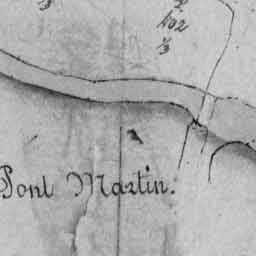 102
Pont Martin.